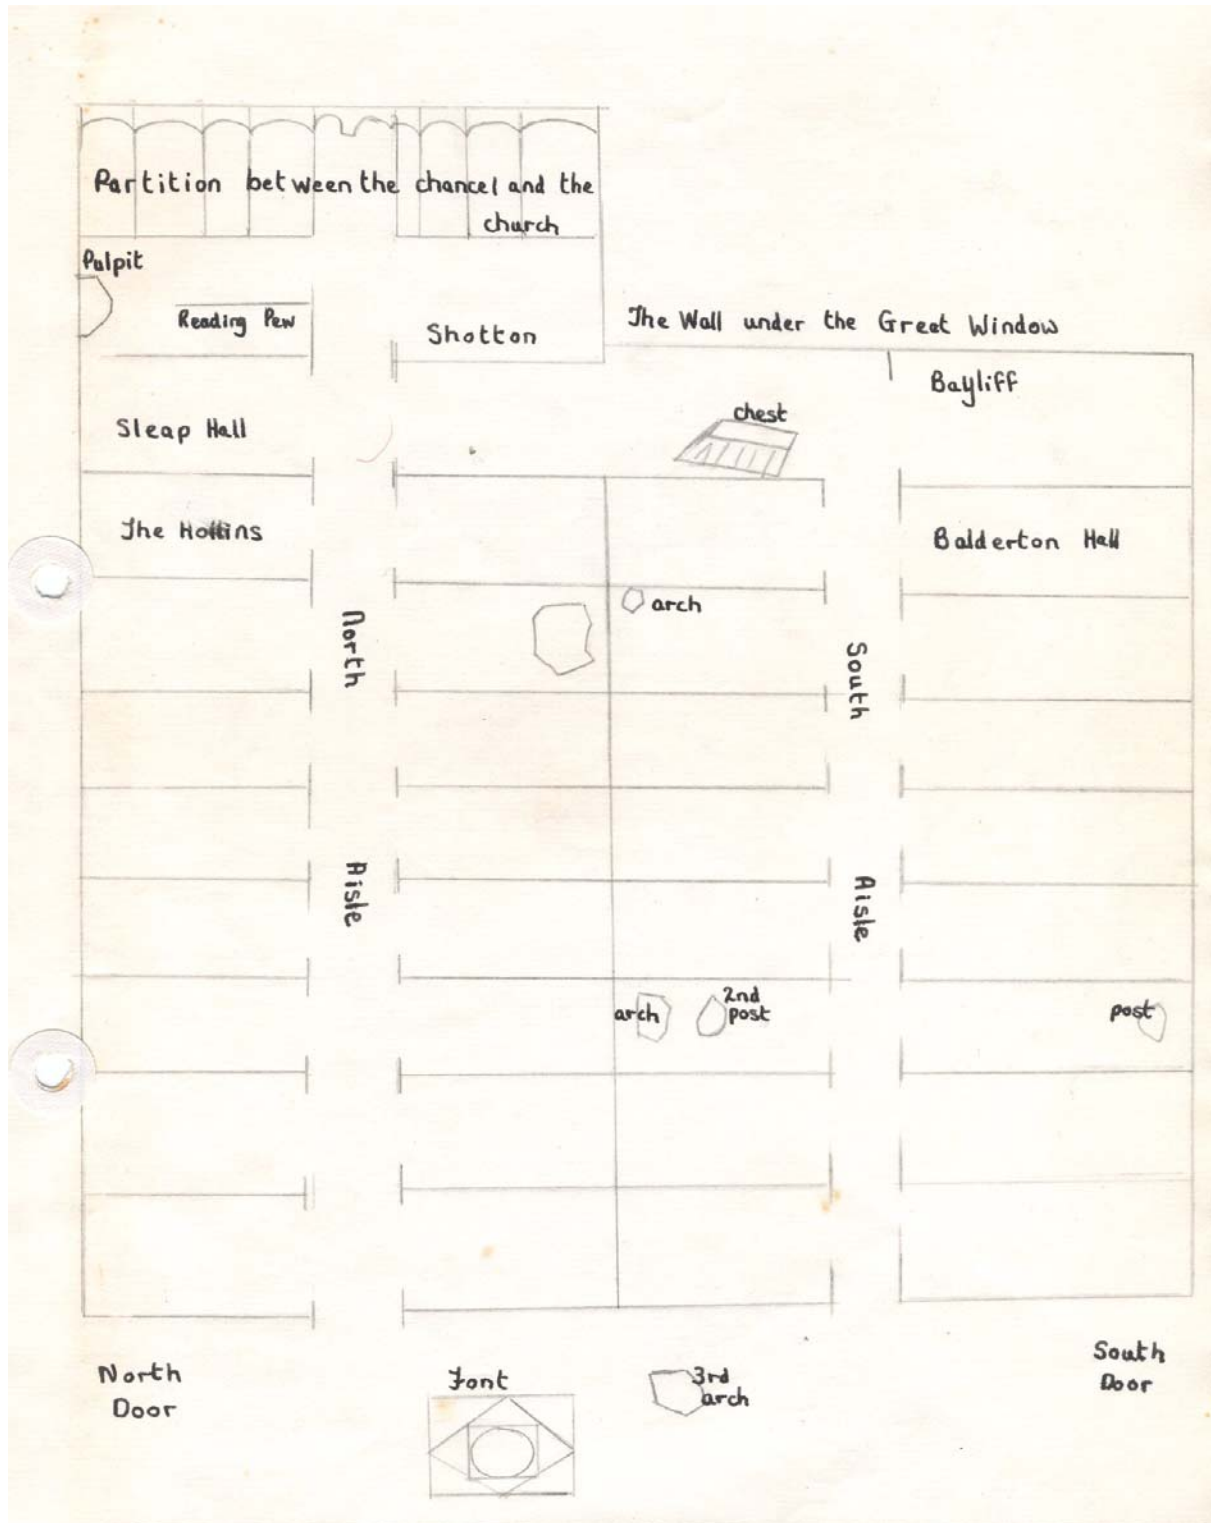 Partition between the chancel and the
church
Pulpit
Reading Pew
Shotton
The Wall under the Great Window
Bayliff
Sleap Hall
chest
The Hollins
Balderton Hall
arch
North
Aisle
South
Aisle
arch
2nd
post
post
North
Door
Font
3rd
arch
South
Door